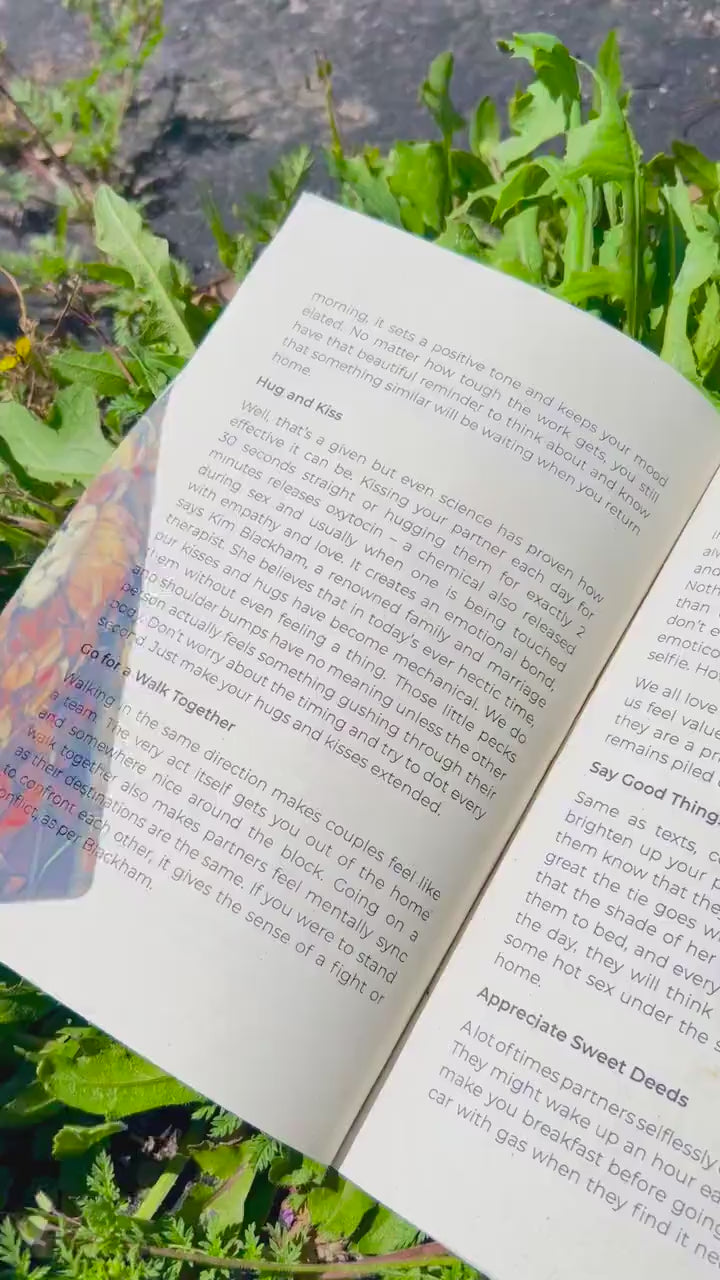 morning, it sets a positive tone and keeps your mood
elated. No matter how tough the work gets, you still
have that beautiful reminder to think about and know
that something similar will be waiting when you return
home.
Hug and Kiss
Well, that's a given but even science has proven how
effective it can be. Kissing your partner each day for
30 seconds straight or hugging them for exactly 2
minutes releases oxytocin – a chemical also released
during sex and usually when one is being touched
with empathy and love. It creates an emotional bond,
says Kim Blackham, a renowned family and marriage
therapist. She believes that in today's ever hectic time,
our kisses and hugs have become mechanical. We do
them without even feeling a thing. Those little pecks
and shoulder bumps have no meaning unless the other
person actually feels something gushing through their
body. Don't worry about the timing and try to dot every
second. Just make your hugs and kisses extended.
Go for a Walk Together
Walking in the same direction makes couples feel like
a team. The very act itself gets you out of the home
and somewhere nice around the block. Going on a
walk together also makes partners feel mentally sync
as their destinations are the same. If you were to stand
to confront each other, it gives the sense of a fight or
conflict, as per Blackham.
and
Noth
than
don't e
emotico
selfie. Ho
We all love
us feel value
they are a pr
remains piled
Say Good Thing
Same as texts, c
brighten up your p
them know that the
great the tie goes w
that the shade of her
them to bed, and every
the day, they will think
some hot sex under the s
home.
Appreciate Sweet Deeds
A lot of times partners selflessly
They might wake up an hour ea
make you breakfast before going
car with gas when they find it ne